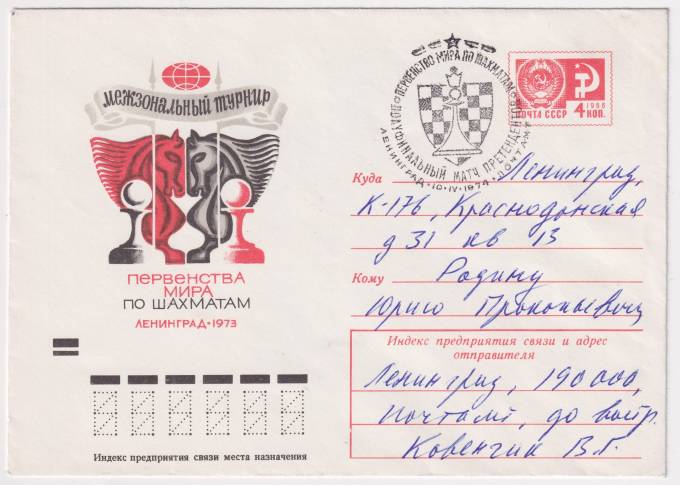 межзональный турнир
ПЕРВЕНСТВА
МИРА
ПО ШАХМАТАМ
ЛЕНИНГРАД•1973
ПЕРВЕНСТВО МИРА ПО ШАХМАТАМ
ПОЛУФИНАЛЬНЫЙ МАТЧ ПРЕТЕНДЕНТОВ
ЛЕНИНГРАД•10•IV•1974•ПОЧТАМТ
1966
ПОЧТА СССР 4 КОП.
Куда Ленинград,
К-176, Краснодонская
д 31 кв 13
Кому Родину
Юрию Прокопьевичу
Индекс предприятия связи и адрес
отправителя
Ленинград, 190000,
почтамт, до востр.
Ковенчик В.Г.
Индекс предприятия связи места назначения